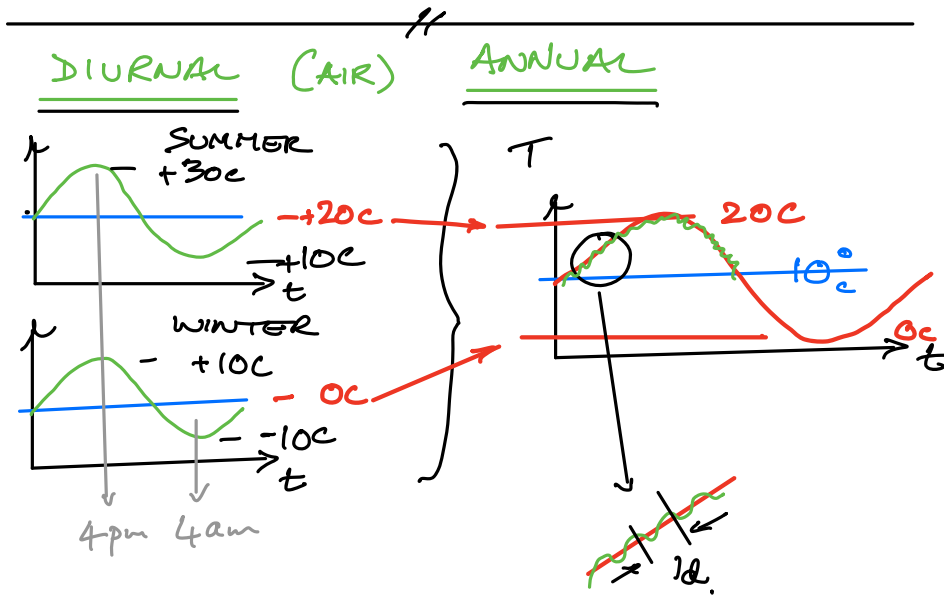 DIURNAL (AIR) ANNUAL
SUMMER
+30C
+20C
+10C
t
WINTER
+10C
0C
-10C
t
4pm 4am
T
20C
10°C
0C
t
1d.